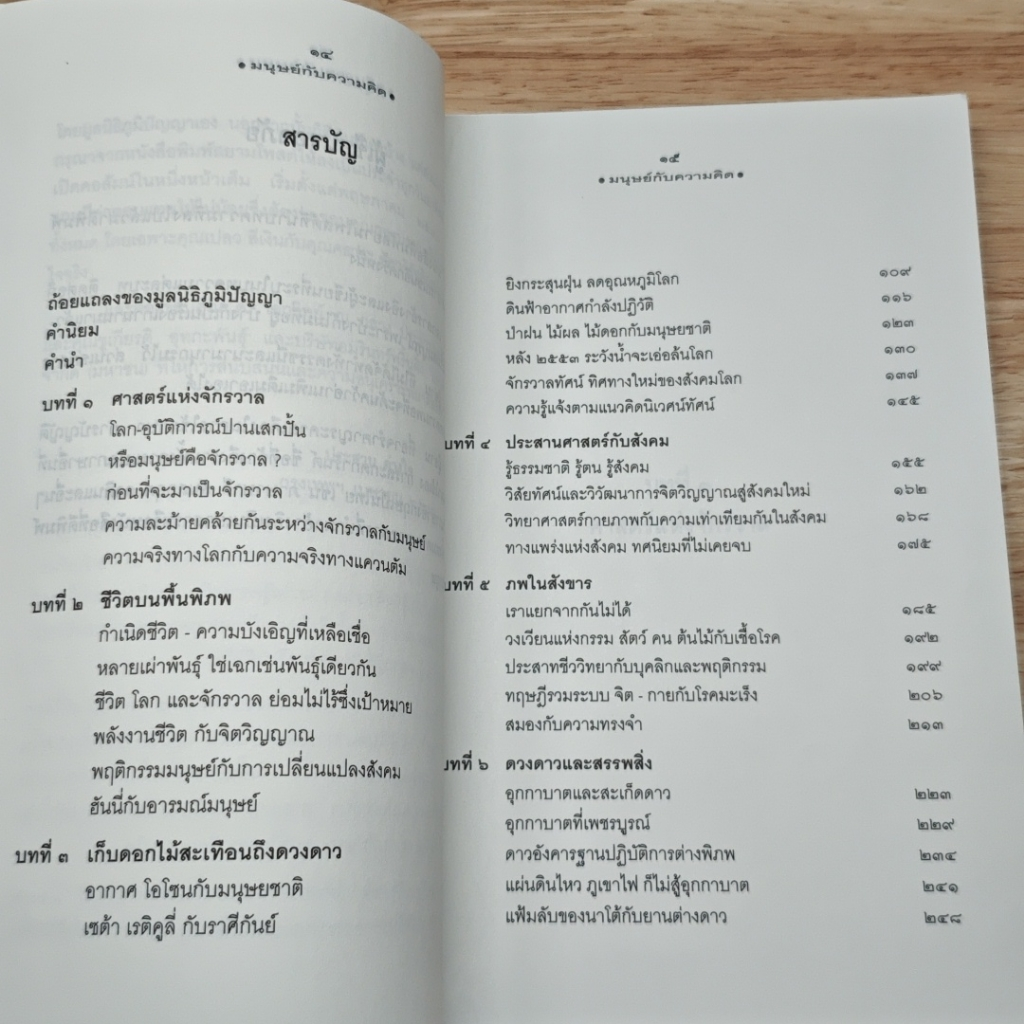 ๑๔
• มนุษย์กับความคิด •
สารบัญ
ถ้อยแถลงของมูลนิธิภูมิปัญญา
คำนิยม
คำนำ
บทที่ ๑ ศาสตร์แห่งจักรวาล
โลก-อุบัติการณ์ปานเสกปั้น
หรือมนุษย์คือจักรวาล ?
ก่อนที่จะมาเป็นจักรวาล
ความละม้ายคล้ายกันระหว่างจักรวาลกับมนุษย์
ความจริงทางโลกกับความจริงทางแควนตัม
บทที่ ๒ ชีวิตบนพื้นพิภพ
กำเนิดชีวิต - ความบังเอิญที่เหลือเชื่อ
หลายเผ่าพันธุ์ ใช่เฉกเช่นพันธุ์เดียวกัน
ชีวิต โลก และจักรวาล ย่อมไม่ไร้ซึ่งเป้าหมาย
พลังงานชีวิต กับจิตวิญญาณ
พฤติกรรมมนุษย์กับการเปลี่ยนแปลงสังคม
ฮันนี่กับอารมณ์มนุษย์
บทที่ ๓ เก็บดอกไม้สะเทือนถึงดวงดาว
อากาศ โอโซนกับมนุษยชาติ
เซต้า เรติคูลี่ กับราศีกันย์
๑๕
• มนุษย์กับความคิด •
ยิงกระสุนฝุ่น ลดอุณหภูมิโลก ๑๐๙
ดินฟ้าอากาศกำลังปฏิวัติ ๑๑๖
ป่าฝน ไม้ผล ไม้ดอกกับมนุษยชาติ ๑๒๓
หลัง ๒๕๕๓ ระวังน้ำจะเอ่อล้นโลก ๑๓๐
จักรวาลทัศน์ ทิศทางใหม่ของสังคมโลก ๑๓๗
ความรู้แจ้งตามแนวคิดนิเวศน์ทัศน์ ๑๔๕
บทที่ ๔ ประสานศาสตร์กับสังคม
รู้ธรรมชาติ รู้ตน รู้สังคม ๑๕๕
วิสัยทัศน์และวิวัฒนาการจิตวิญญาณสู่สังคมใหม่ ๑๖๒
วิทยาศาสตร์กายภาพกับความเท่าเทียมกันในสังคม ๑๖๘
ทางแพร่งแห่งสังคม ทศนิยมที่ไม่เคยจบ ๑๗๕
บทที่ ๕ ภพในสังขาร
เราแยกจากกันไม่ได้ ๑๘๕
วงเวียนแห่งกรรม สัตว์ คน ต้นไม้กับเชื้อโรค ๑๙๒
ประสาทชีววิทยากับบุคลิกและพฤติกรรม ๑๙๙
ทฤษฎีรวมระบบ จิต - กายกับโรคมะเร็ง ๒๐๖
สมองกับความทรงจำ ๒๑๓
บทที่ ๖ ดวงดาวและสรรพสิ่ง
อุกกาบาตและสะเก็ดดาว ๒๒๓
อุกกาบาตที่เพชรบูรณ์ ๒๒๙
ดาวอังคารฐานปฏิบัติการต่างพิภพ ๒๓๔
แผ่นดินไหว ภูเขาไฟ ก็ไม่สู้อุกกาบาต ๒๔๑
แฟ้มลับของนาโต้กับยานต่างดาว ๒๔๘